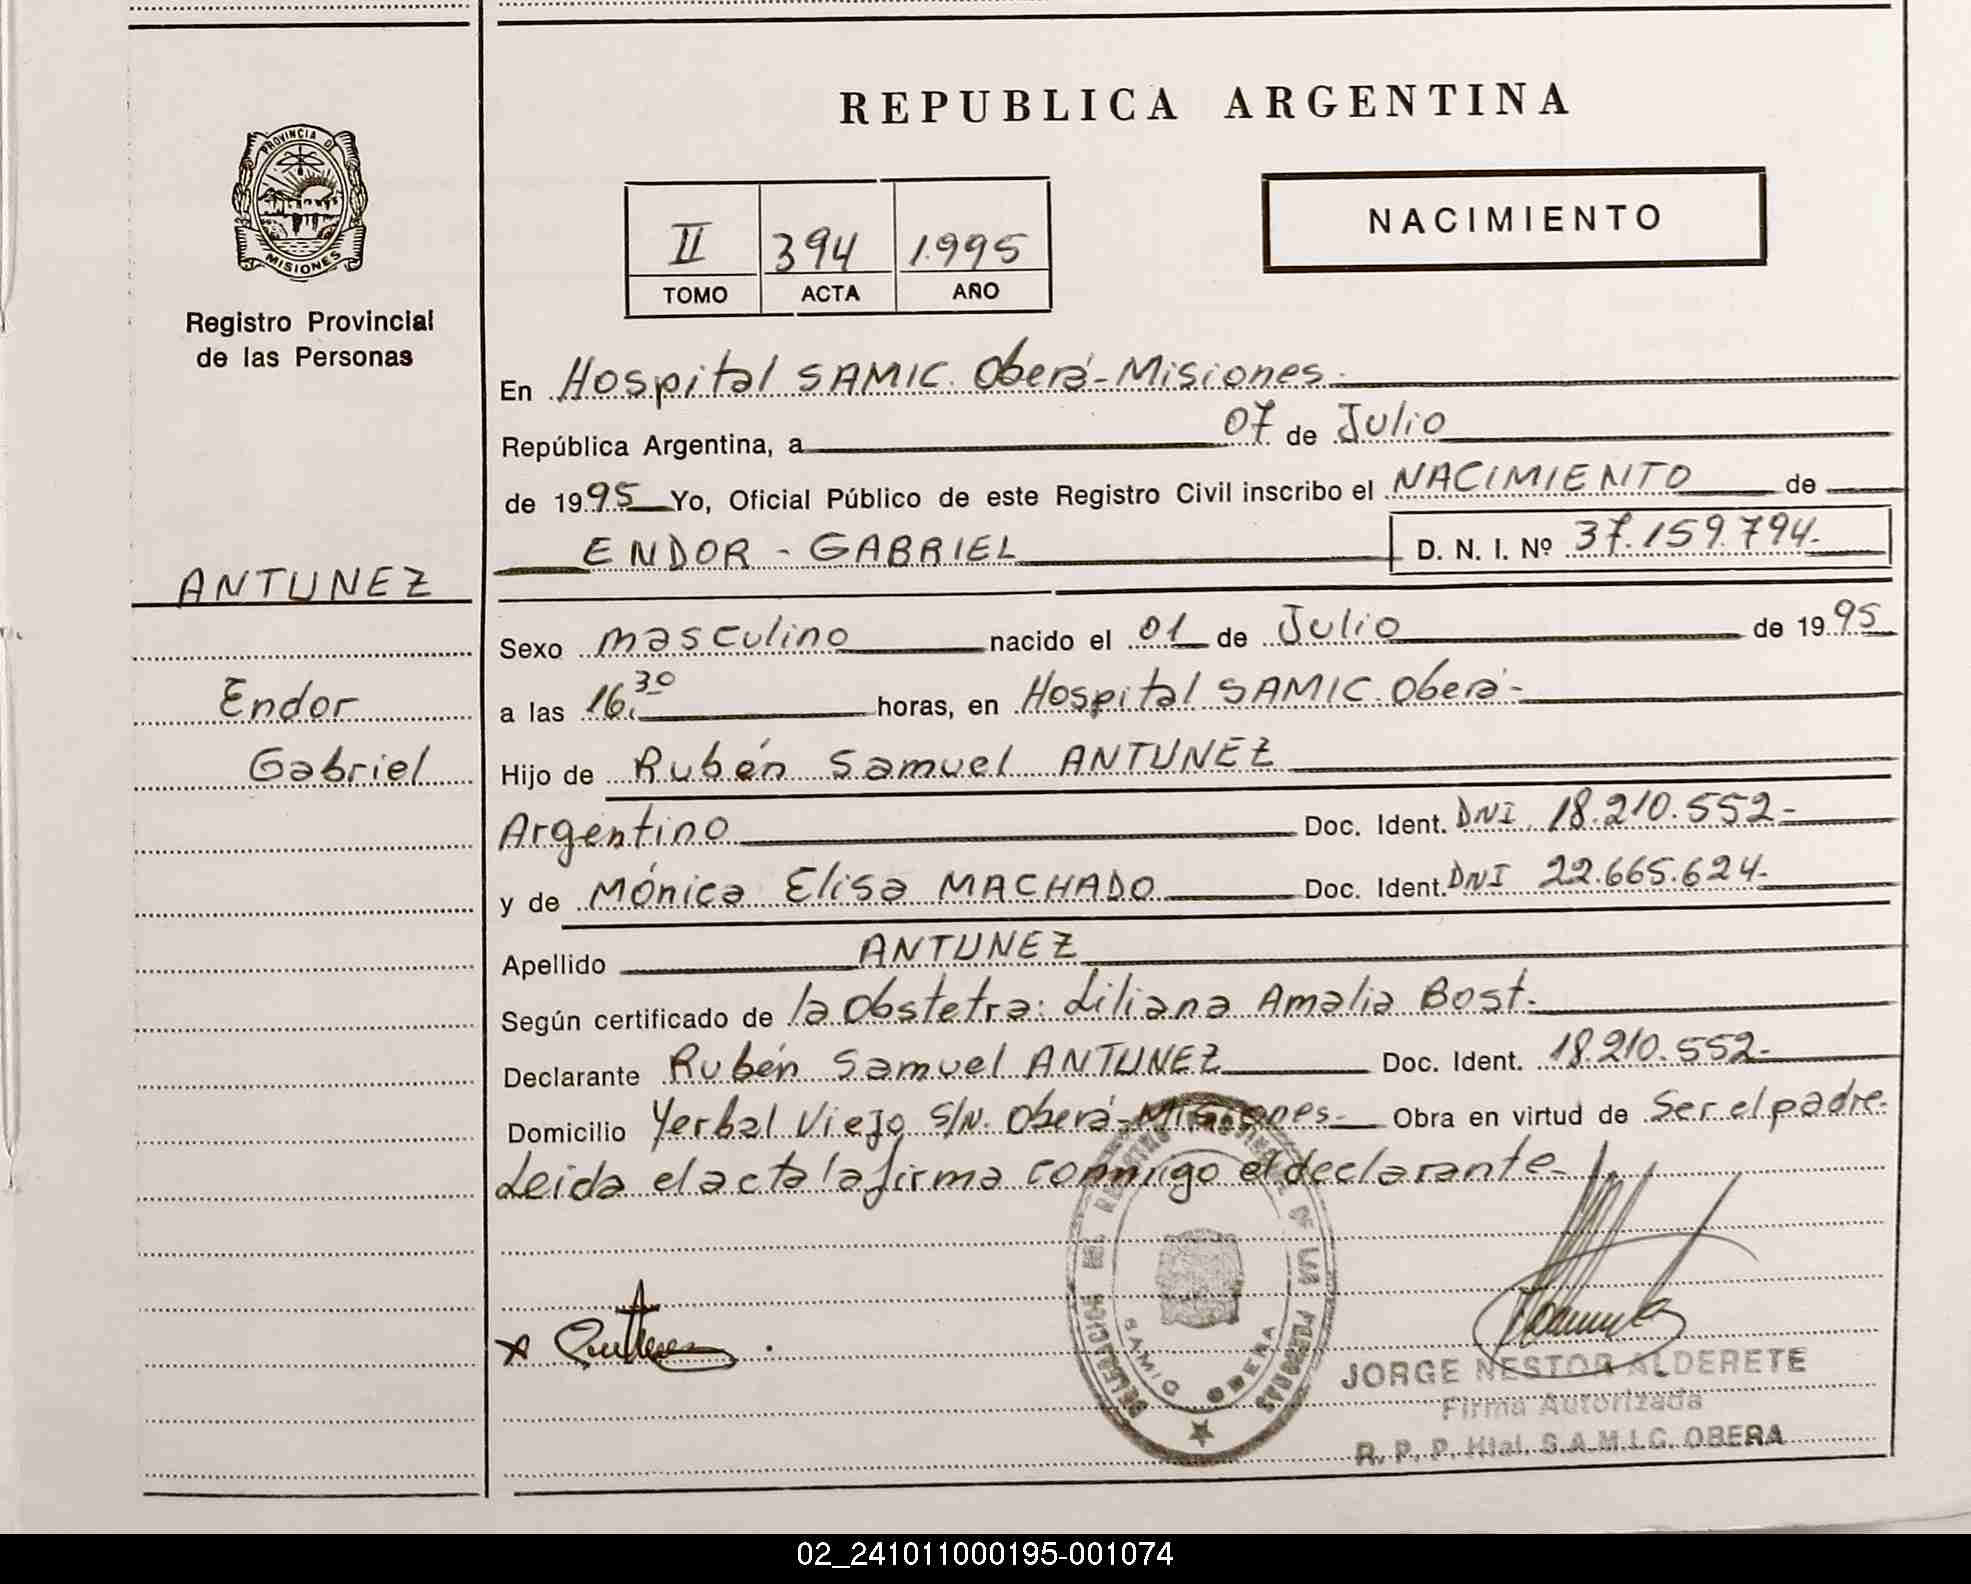 REPUBLICA ARGENTINA
PROVINCIA DE
MISIONES
Registro Provincial
de las Personas
NACIMIENTO
II 394 1.995
TOMO ACTA AÑO
En Hospital SAMIC. Oberá-Misiones.
República Argentina, a 07 de Julio
de 1995 Yo, Oficial Público de este Registro Civil inscribo el NACIMIENTO de
ENDOR - GABRIEL D. N. I. Nº 37.159.794.
ANTUNEZ
Endor
Gabriel
Sexo masculino nacido el 01 de Julio de 1995
a las 16.30 horas, en Hospital SAMIC. Oberá-
Hijo de Rubén Samuel ANTUNEZ
Argentino Doc. Ident. DNI 18.210.552-
y de Mónica Elisa MACHADO Doc. Ident. DNI 22.665.624-
Apellido ANTUNEZ
Según certificado de la Obstetra: Liliana Amalia Bost.
Declarante Rubén Samuel ANTUNEZ Doc. Ident. 18.210.552-
Domicilio Yerbal Viejo S/N. Oberá-Misiones- Obra en virtud de Ser el padre.
Leida el acta la firma conmigo el declarante-
DELEGACION DEL REGISTRO PROVINCIAL DE LAS PERSONAS
SAMIC OBERA
JORGE NESTOR ALDERETE
Firma Autorizada
R. P. P. Htal. S.A.M.I.C. OBERA
02_241011000195-001074